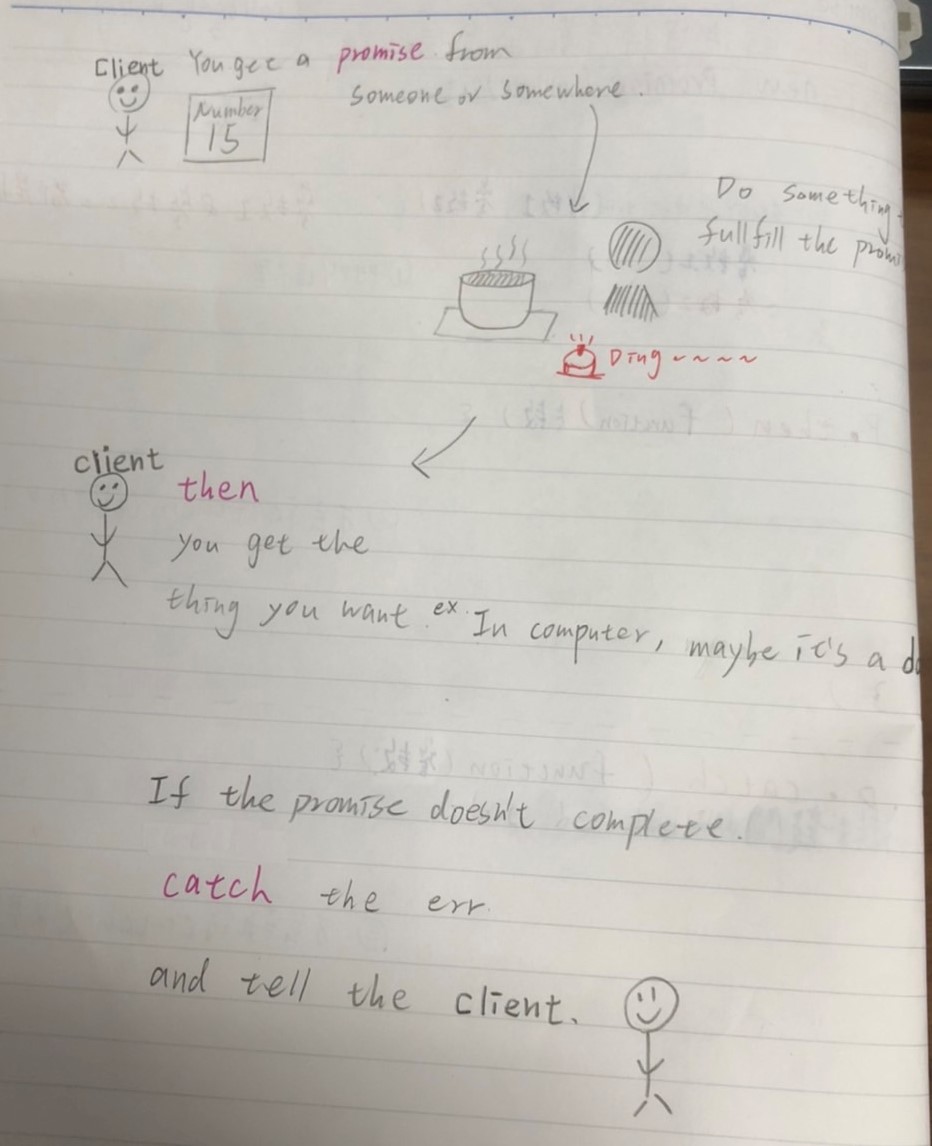 Client You get a promise from
someone or somewhere.
Number
15
Do something
fullfill the
Ding ~~~~
client
then
you get the
thing you want. ex. In computer, maybe it's a
If the promise doesn't complete.
catch the err.
and tell the client.